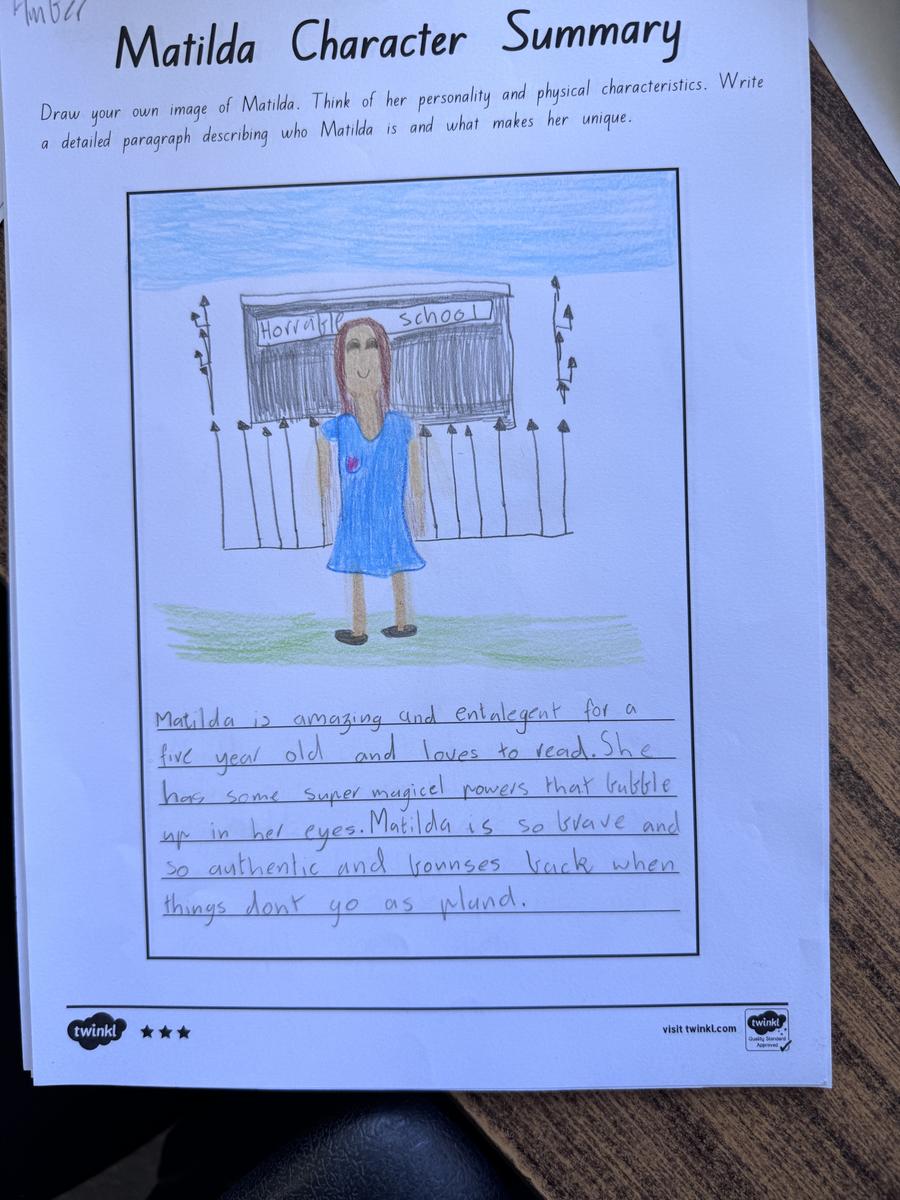 Amber
Matilda Character Summary
Draw your own image of Matilda. Think of her personality and physical characteristics. Write
a detailed paragraph describing who Matilda is and what makes her unique.
Horrable school
Matilda is amazing and entalegent for a
five year old and loves to read. She
has some super magicel powers that bubble
up in her eyes. Matilda is so brave and
so authentic and bounses back when
things dont go as pland.
twinkl
visit twinkl.com
twinkl
Quality Standard
Approved